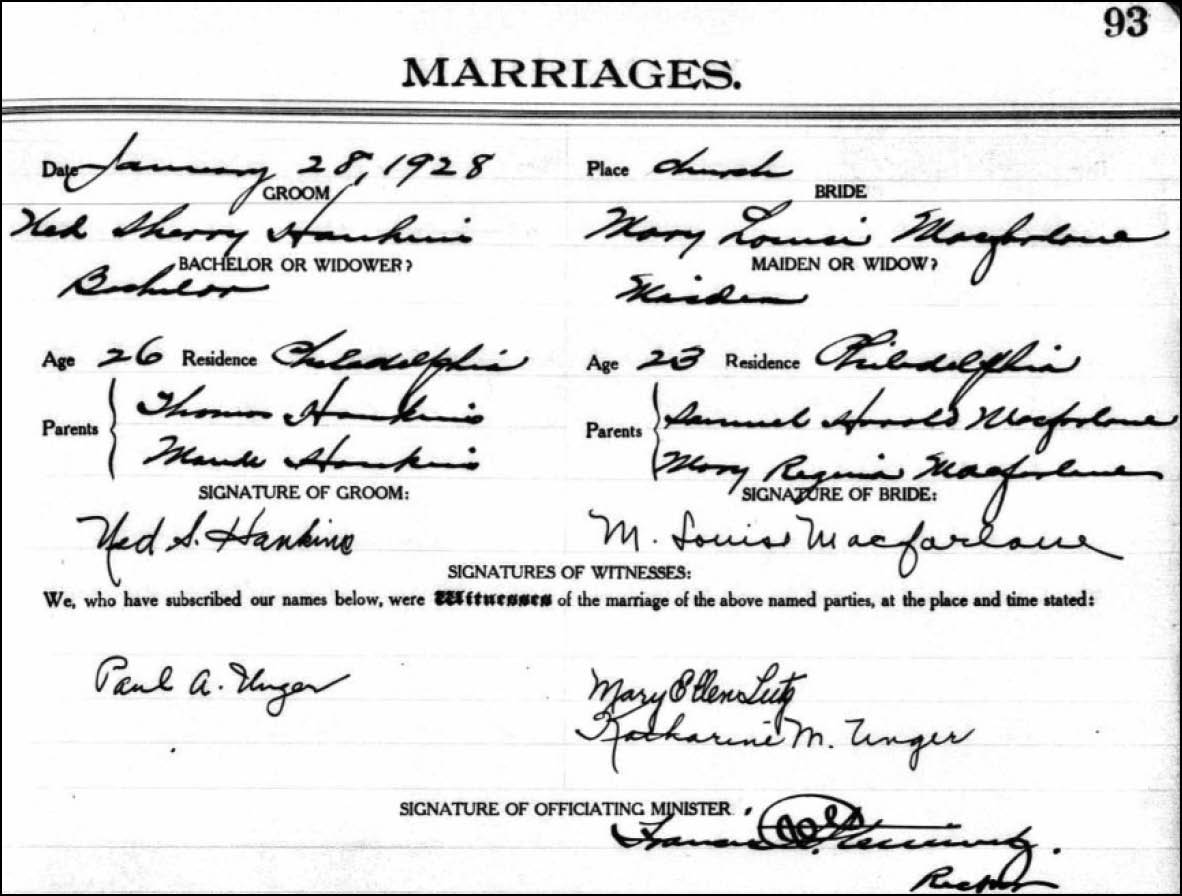 93
MARRIAGES.
Date January 28, 1928 Place church
GROOM BRIDE
Ned Sherry Hankins Mary Louise Macfarlane
BACHELOR OR WIDOWER? MAIDEN OR WIDOW?
Bachelor Maiden
Age 26 Residence Philadelphia Age 23 Residence Philadelphia
Parents Thomas Hankins Parents Samuel Harold Macfarlane
Maude Hankins Mary Regina Macfarlane
SIGNATURE OF GROOM: SIGNATURE OF BRIDE:
Ned S. Hankins M. Louise Macfarlane
SIGNATURES OF WITNESSES:
We, who have subscribed our names below, were Witnesses of the marriage of the above named parties, at the place and time stated:
Paul A. Unger Mary Ellen Lutz
Katharine M. Unger
SIGNATURE OF OFFICIATING MINISTER
Francis
Rector